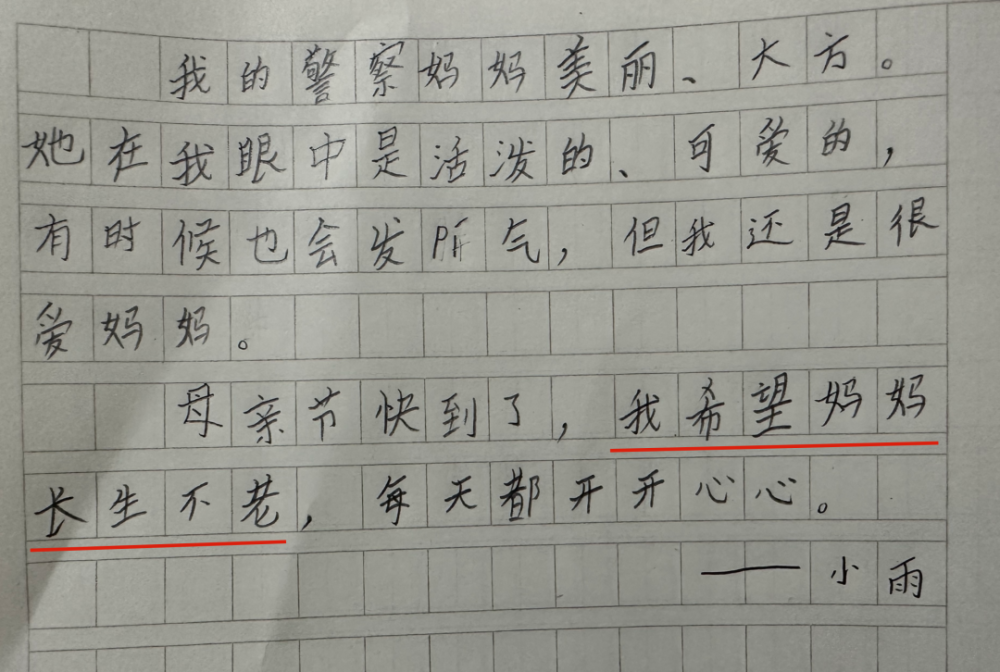 我的警察妈妈美丽、大方。
她在我眼中是活泼的、可爱的，
有时候也会发脾气，但我还是很
爱妈妈。
母亲节快到了，我希望妈妈
长生不老，每天都开开心心。
——小雨